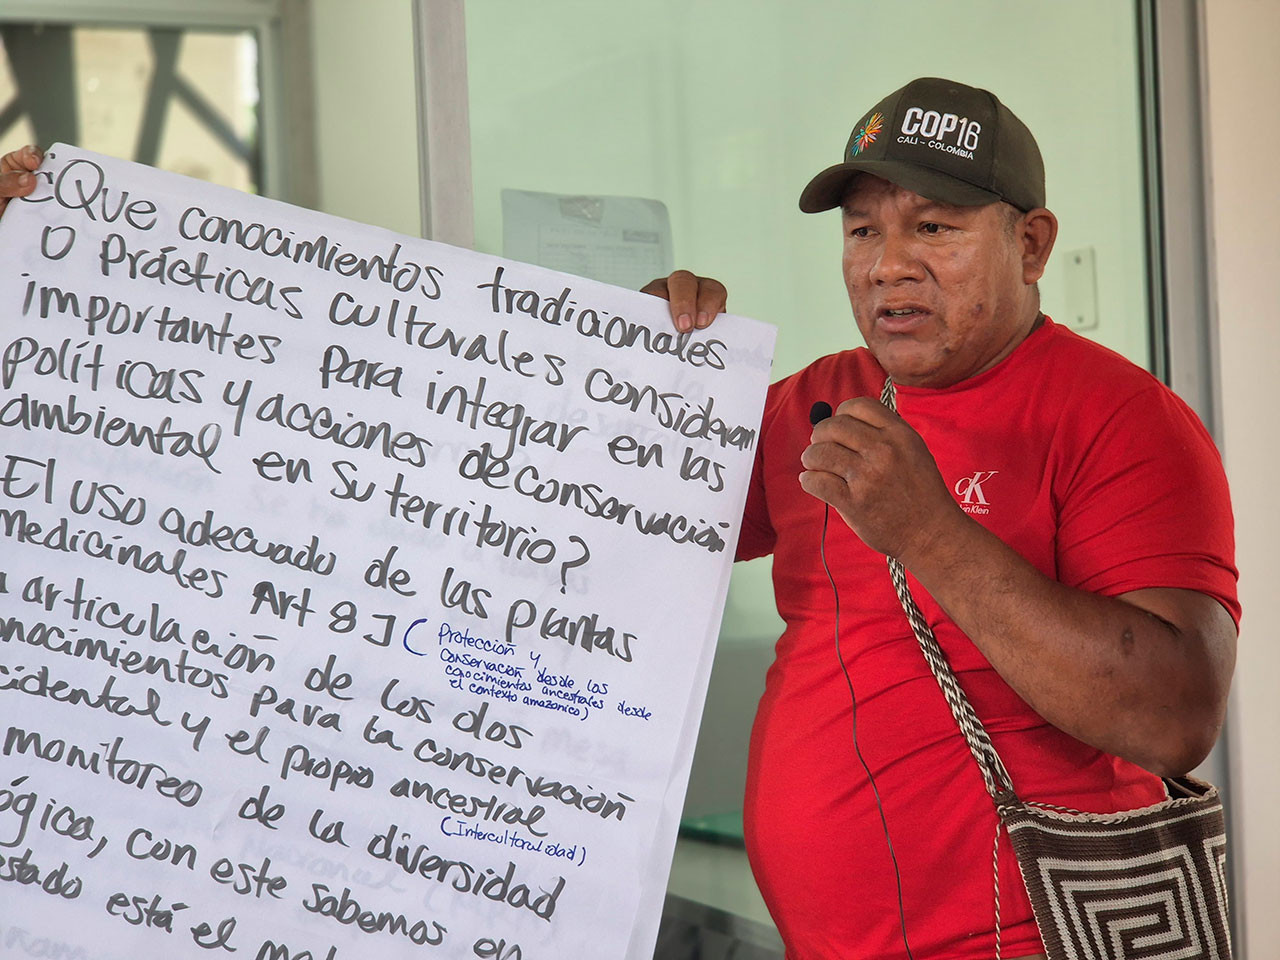 ¿Que conocimientos tradicionales
o prácticas culturales consideran
importantes para integrar en las
políticas y acciones de conservación
ambiental en su territorio?
El uso adecuado de las plantas
medicinales Art 8J
(Protección y
conservación desde los
conocimientos ancestrales desde
el contexto amazonico)
articulación de los dos
onocimientos para la conservación
cidental y el propio ancestral
(Interculturalidad)
monitoreo de la diversidad
ógica, con este sabemos en
estado está el
COP16
CALI - COLOMBIA
CK
in Klein